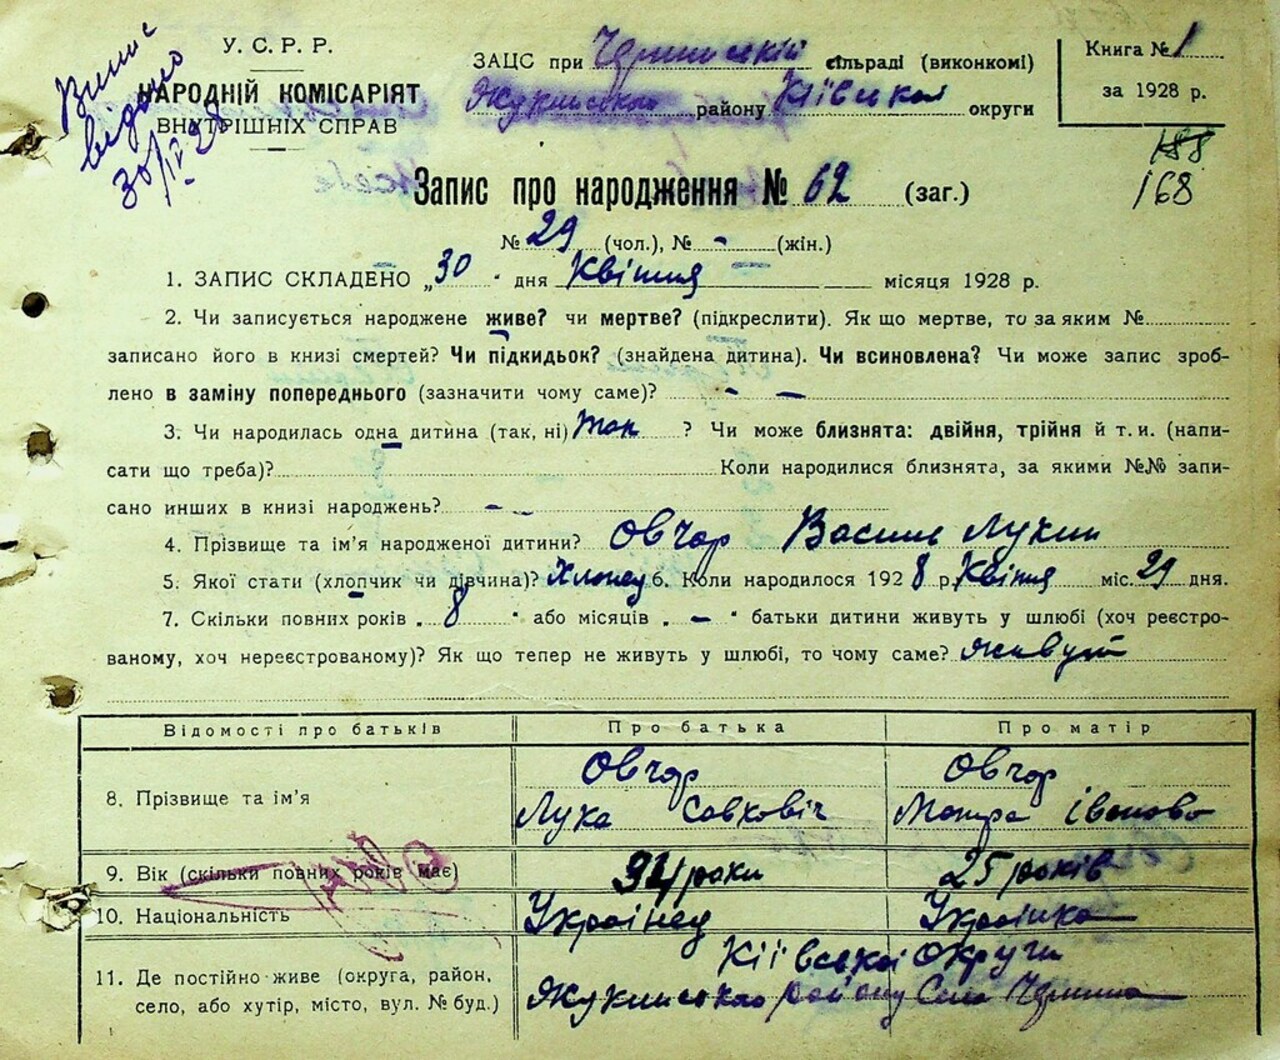 Випис
видано
30/IV 28
У. С. Р. Р.
НАРОДНІЙ КОМІСАРІЯТ
ВНУТРІШНІХ СПРАВ
ЗАЦС при сільраді (виконкомі)
Жукинського району Київської округи
Книга № 1
за 1928 р.
188
168
Запис про народження № 62 (заг.)
№ 29 (чол.), № - (жін.)
1. ЗАПИС СКЛАДЕНО „30" дня Квітня місяця 1928 р.
2. Чи записується народжене живе? чи мертве? (підкреслити). Як що мертве, то за яким №
записано його в книзі смертей? Чи підкидьок? (знайдена дитина). Чи всиновлена? Чи може запис зроб-
лено в заміну попереднього (зазначити чому саме)? - -
3. Чи народилась одна дитина (так, ні) Так ? Чи може близнята: двійня, трійня й т. и. (напи-
сати що треба)? Коли народилися близнята, за якими №№ запи-
сано инших в книзі народжень? - -
4. Прізвище та ім'я народженої дитини? Овчар Василь Лукич
5. Якої стати (хлопчик чи дівчина)? Хлопец 6. Коли народилося 1928 р. Квітня міс. 29 дня.
7. Скільки повних років „ 8 " або місяців „ - " батьки дитини живуть у шлюбі (хоч реєстро-
ваному, хоч нереєстрованому)? Як що тепер не живуть у шлюбі, то чому саме? живут
Відомості про батьків Про батька Про матір
8. Прізвище та ім'я Овчар Овчар
Лука Савковіч Мотря Іваново
9. Вік (скільки повних років має) роки 25 років
10. Національність Українец Українка
11. Де постійно живе (округа, район, Київської Округи
село, або хутір, місто, вул. № буд.) Жукинського району Село